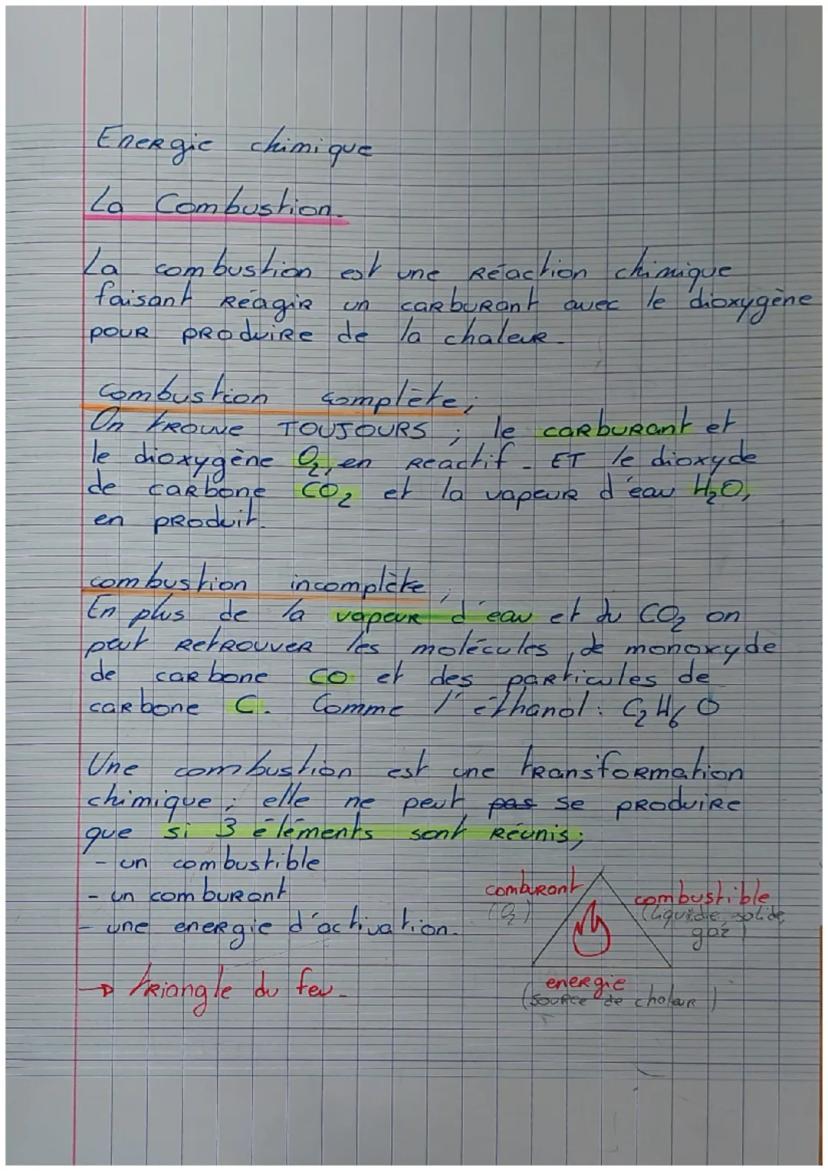 Energie chimique
La Combustion.
La combustion est une Réaction chimique
faisant Réagir un carburant avec le dioxygène
pour produire de la chaleur.
combustion complète;
On trouve TOUJOURS ; le carburant et
le dioxygène O₂, en Reactif. ET le dioxyde
de carbone CO₂ et la vapeur d'eau H₂O,
en produit.
combustion incomplète;
En plus de la vapeur d'eau et du CO₂ on
peut retrouver les molécules, de monoxyde
de carbone CO et des particules de
carbone C. Comme l'éthanol : C₂H₆O
Une combustion est une transformation
chimique ; elle ne peut pas se produire
que si 3 éléments sont Réunis;
- un combustible
- un comburant
- une energie d'activation.
→ triangle du feu.
comburant
(O₂)
combustible
(liquide, solide,
gaz)
energie
(source de chaleur)